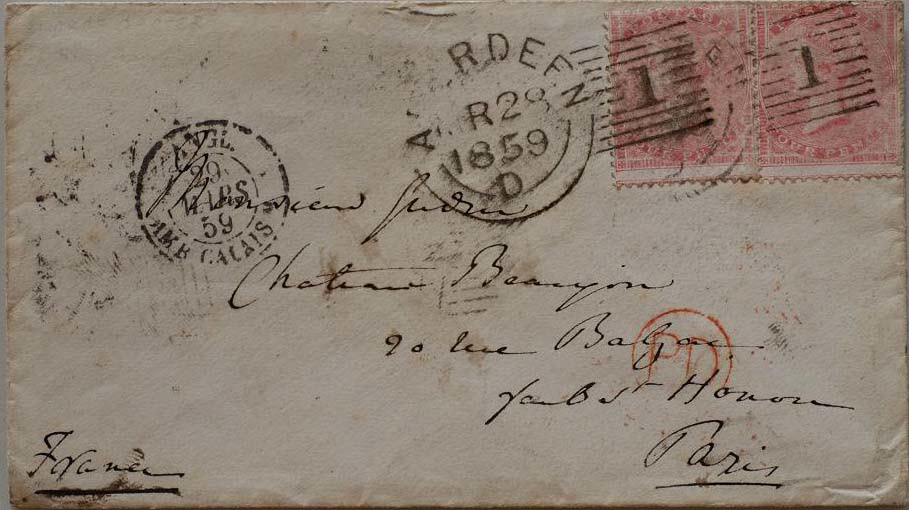 ABERDEEN
MR 28
1859
D
1
1
FOUR PENCE
ANGL.
29
MARS
59
AMB. CALAIS
Monsieur Gudin
Chateau Beaujon
20 rue Balzac
faub St Honoré
Paris
France
PD